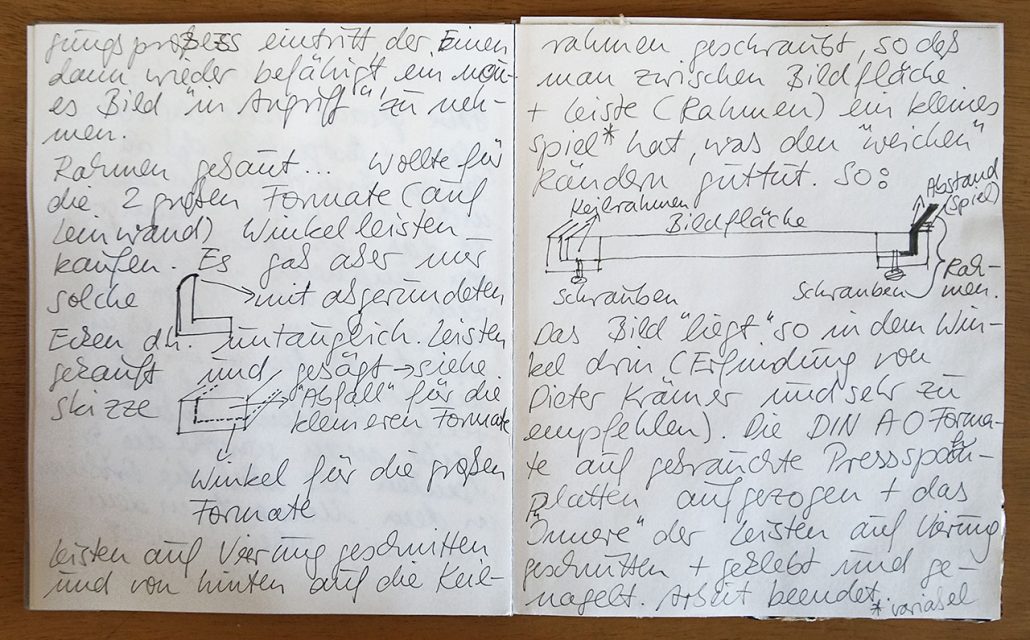 gungsprozess eintritt der Einen
dann wieder befähigt, ein neu-
es Bild "in Angriff" zu neh-
men.
Rahmen gebaut... Wollte für
die 2 großen Formate (auf
Leinwand) Winkelleisten
kaufen. Es gab aber nur
solche mit abgerundeten
Ecken dh. untauglich. Leisten
gekauft und gesägt → siehe
Skizze "Abfall" für die
kleineren Formate
Winkel für die großen
Formate
Leisten auf Vierung geschnitten
und von hinten auf die Keil-
rahmen geschraubt, so daß
man zwischen Bildfläche
+ Leiste (Rahmen) ein kleines
Spiel* hat, was den "weichen"
Rändern guttut. So:
Keilrahmen
Bildfläche
Abstand
(Spiel)
Schrauben
Schrauben
Rah-
men.
Das Bild "liegt" so in dem Win-
kel drin (Erfindung von
Dieter Krämer und sehr zu
empfehlen). Die DIN A0 Forma-
te auf gebrauchte Pressspan-
platten aufgezogen + das
"Innere" der Leisten auf Vierung
geschnitten + geklebt und ge-
nagelt. Arbeit beendet.
* variabel